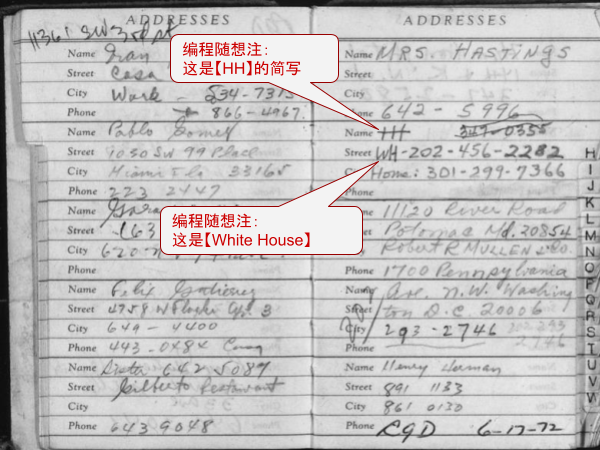 ADDRESSES
11361 SW 3rd
Name Ivan
Street Casa
City Work - 534-7315
Phone 866-4967
Name Pablo Gomez
Street 1030 SW 99 Place
City Miami Fla 33165
Phone 223 2447
Name
Street 163
City 620
Phone
Name Felix Gutierrez
Street 4758 W Flagler 3
City 649 - 4400
Phone 443-0484
Name 642 5087
Street Gilberto Restaurant
City
Phone 643 9048
ADDRESSES
Name MRS. HASTINGS
Street
City
Phone 642-5996
Name HH 347-0355
Street WH-202-456-2282
City Home: 301-299-7366
Phone
Name 11120 River Road
Street Potomac Md. 20854
City Robert R MULLEN & CO.
Phone 1700 Pennsylvania
Name Ave. N.W. Washing
Street ton D.C. 20006
City 293-2746
Phone
Name Henry
Street 891 1133
City 861 0130
Phone RGD 6-17-72
H
I
J
K
L
M
N
O
P
Q
R
S
T
U
V
W
编程随想注：
这是【HH】的简写
编程随想注：
这是【White House】